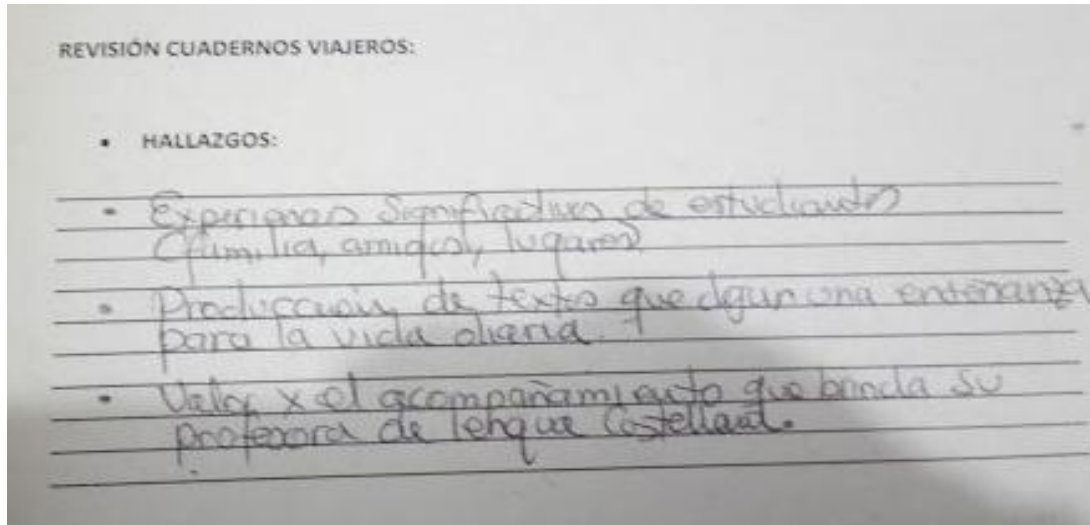 REVISIÓN CUADERNOS VIAJEROS:
• HALLAZGOS:
- Experiencias Significativas de estudiantes
(familia, amigos, lugares)
• Producción de textos que dejan una enseñanza
para la vida diaria.
• Valor x el acompañamiento que brinda su
profesora de lengua Castellana.